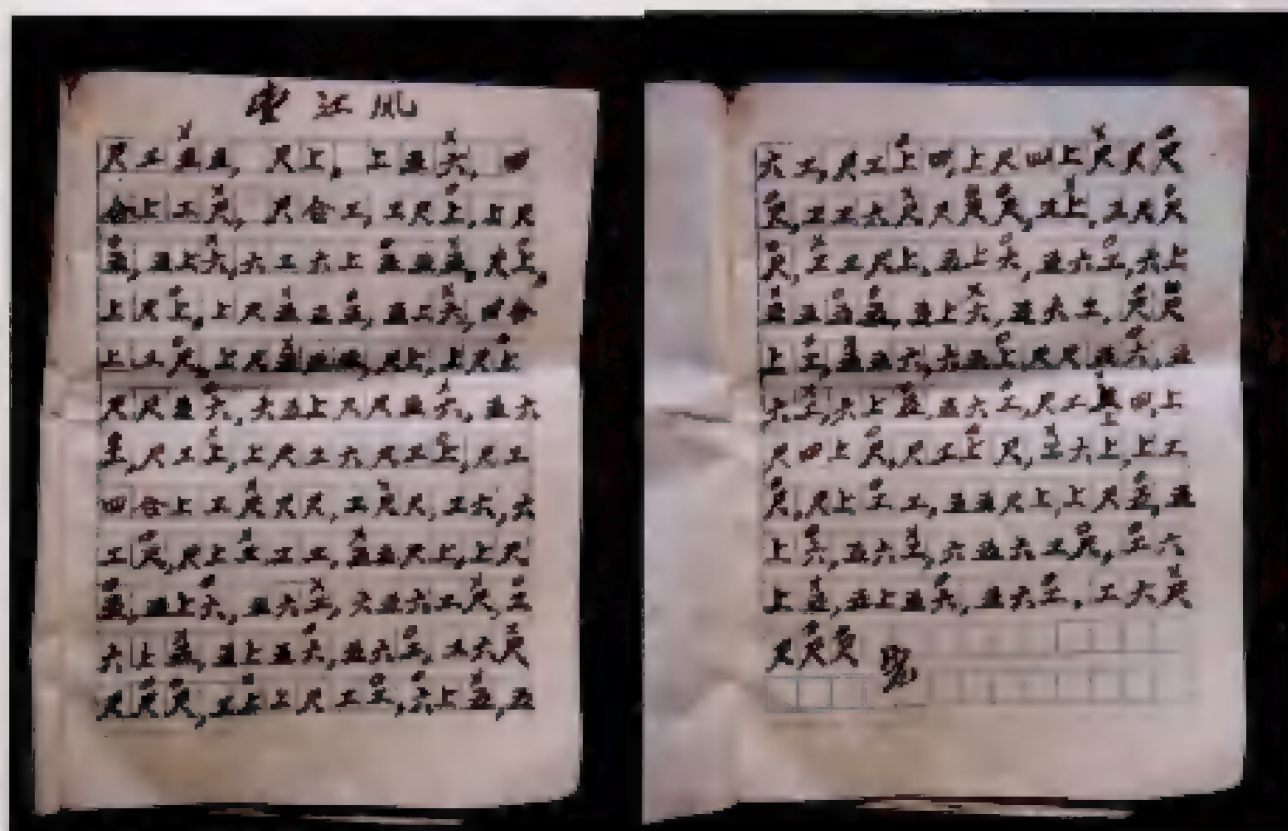 江风
尺工五五, 尺上, 上五六, 四
合上工尺, 尺合工, 工尺上, 上尺
五, 五上六, 六工六上五五五, 尺上,
上尺上, 上尺五五五, 五工六, 四合
上工尺, 上尺五, 尺上, 上尺上
尺尺五六, 六五上尺尺五六, 五六
尺工上, 上尺工六尺工上, 尺工
四合上工尺尺尺, 工尺尺, 工六, 六
工尺, 尺上工工工, 五五尺上, 上尺
五, 五上六, 五六工, 六五六工尺, 工
六上五, 五上五六, 五六工, 工六尺
尺尺尺, 工上上尺工工, 六上五, 五
六工, 尺工上四, 上尺四上尺尺尺
尺, 工工六尺尺尺尺, 工上, 工尺尺
尺, 工工尺上, 五上六, 五六工, 六上
五五五五, 五上六, 五六工, 尺尺
上工, 五五六, 六五上, 尺尺五六, 五
六工, 六上五, 五六工, 尺工四, 上
尺四上尺, 尺工上尺, 工六上, 上工
尺, 尺上工工, 五五尺上, 上尺五, 五
上六, 五六工, 六五六工尺, 工六
上五, 五上五六, 五六工, 工六尺
尺尺尺 完